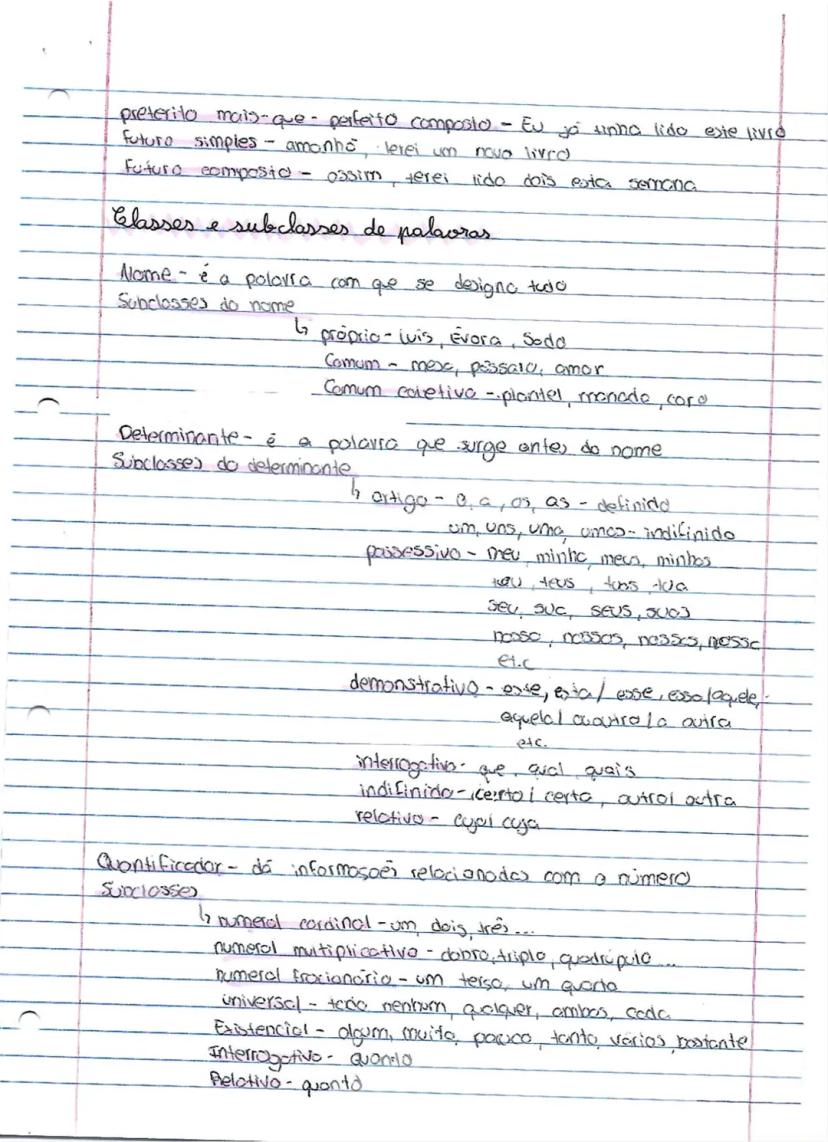 preterito mais-que-perfeito composto - Eu já tinha lido este livro
futuro simples - amanhã, lerei um novo livro
Futuro composto - assim, terei lido dois esta semana
Classes e subclasses de palavras
Nome - é a palavra com que se designa tudo
Subclasses do nome
↳ próprio - luis, Évora, Sado
Comum - mesa, pássaro, amor
Comum coletivo - plantel, manada, coro
Determinante - é a palavra que surge antes do nome
Subclasses do determinante
↳ artigo - o, a, os, as - definido
um, uns, uma, umas - indifinido
possessivo - meu, minha, meus, minhas
teu, teus, tuas, tua
seu, sua, seus, suas
nosso, nossos, nossas, nossa
etc
demonstrativo - este, esta / esse, essa/aquele,
aquela/ o outro/a outra
etc.
interrogativo - que, qual, quais
indifinido - certo/ certa, outro/ outra
relativo - cujo/ cuja
Quantificador - dá informações relacionadas com o número
Subclasses
↳ numeral cardinal - um, dois, três...
numeral multiplicativo - dobro, triplo, quadrúpulo...
numeral fracionário - um terço, um quarto
universal - todo, nenhum, qualquer, ambos, cada
Existencial - algum, muito, pouco, tanto, vários, bastante
Interrogativo - quanto
Relativo - quanto